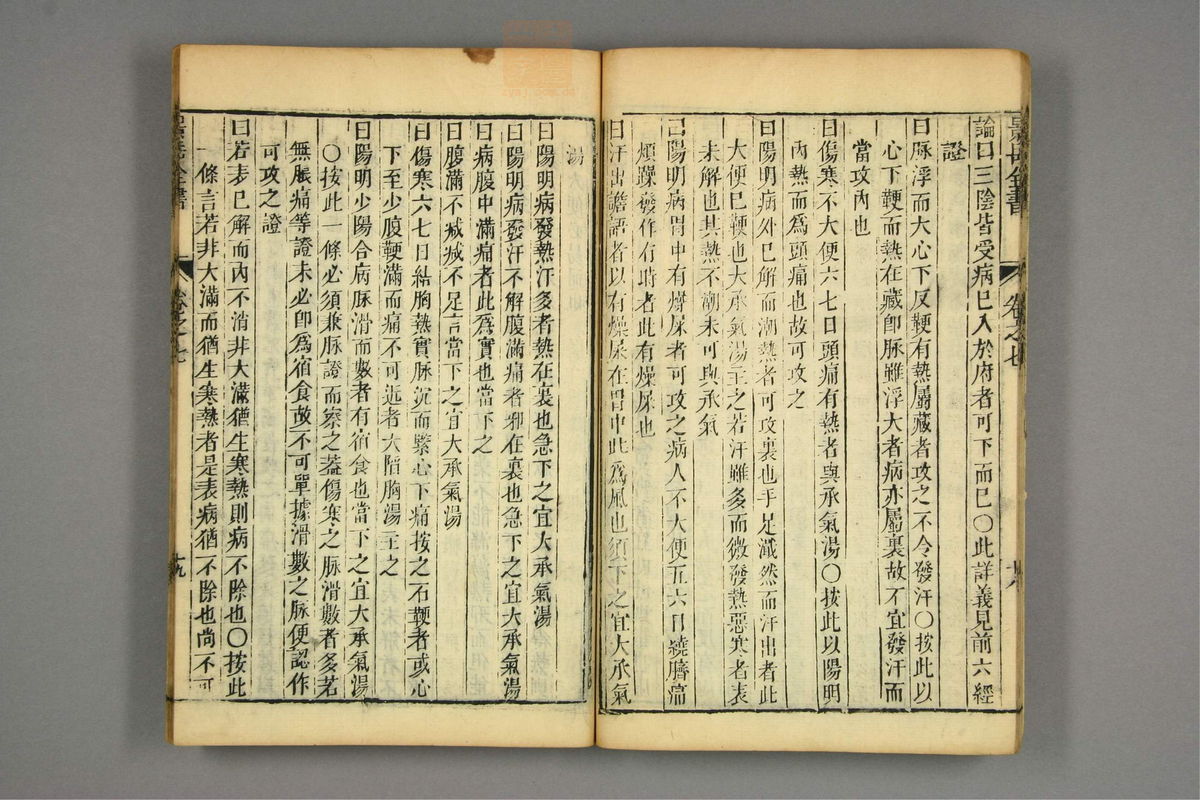 景岳全書 卷之七 十八
論曰三陰皆受病已入於府者可下而已〇此詳義見前六經
證
曰脉浮而大心下反鞕有熱屬藏者攻之不令發汗〇按此以
心下鞕而熱在藏卽脉雖浮大者病亦屬裏故不宜發汗而
當攻內也
曰傷寒不大便六七日頭痛有熱者與承氣湯〇按此以陽明
內熱而為頭痛也故可攻之
曰陽明病外已解而潮熱者可攻裏也手足濈然而汗出者此
大便已鞕也大承氣湯主之若汗雖多而微發熱惡寒者表
未解也其熱不潮未可與承氣
曰陽明病胃中有燥屎者可攻之病人不大便五六日繞臍痛
煩躁發作有時者此有燥屎也
曰汗出譫語者以有燥屎在胃中此為風也須下之宜大承氣
湯
曰陽明病發熱汗多者熱在裏也急下之宜大承氣湯
曰陽明病發汗不解腹滿痛者邪在裏也急下之宜大承氣湯
曰病腹中滿痛者此爲實也當下之
曰腹滿不减减不足言當下之宜大承氣湯
曰傷寒六七日結胸熱實脉沉而緊心下痛按之石鞕者或心
下至少腹鞕滿而痛不可近者大陷胸湯主之
曰陽明少陽合病脉滑而數者有宿食也當下之宜大承氣湯
〇按此一條必須兼脉證而察之蓋傷寒之脉滑數者多若
無脹痛等證未必卽爲宿食故不可單據滑數之脉便認作
可攻之證
曰若表已解而內不消非大滿猶生寒熱則病不除也〇按此
一條言若非大滿而猶生寒熱者是表病猶不除也尚不可
景岳全書 卷之七 十九